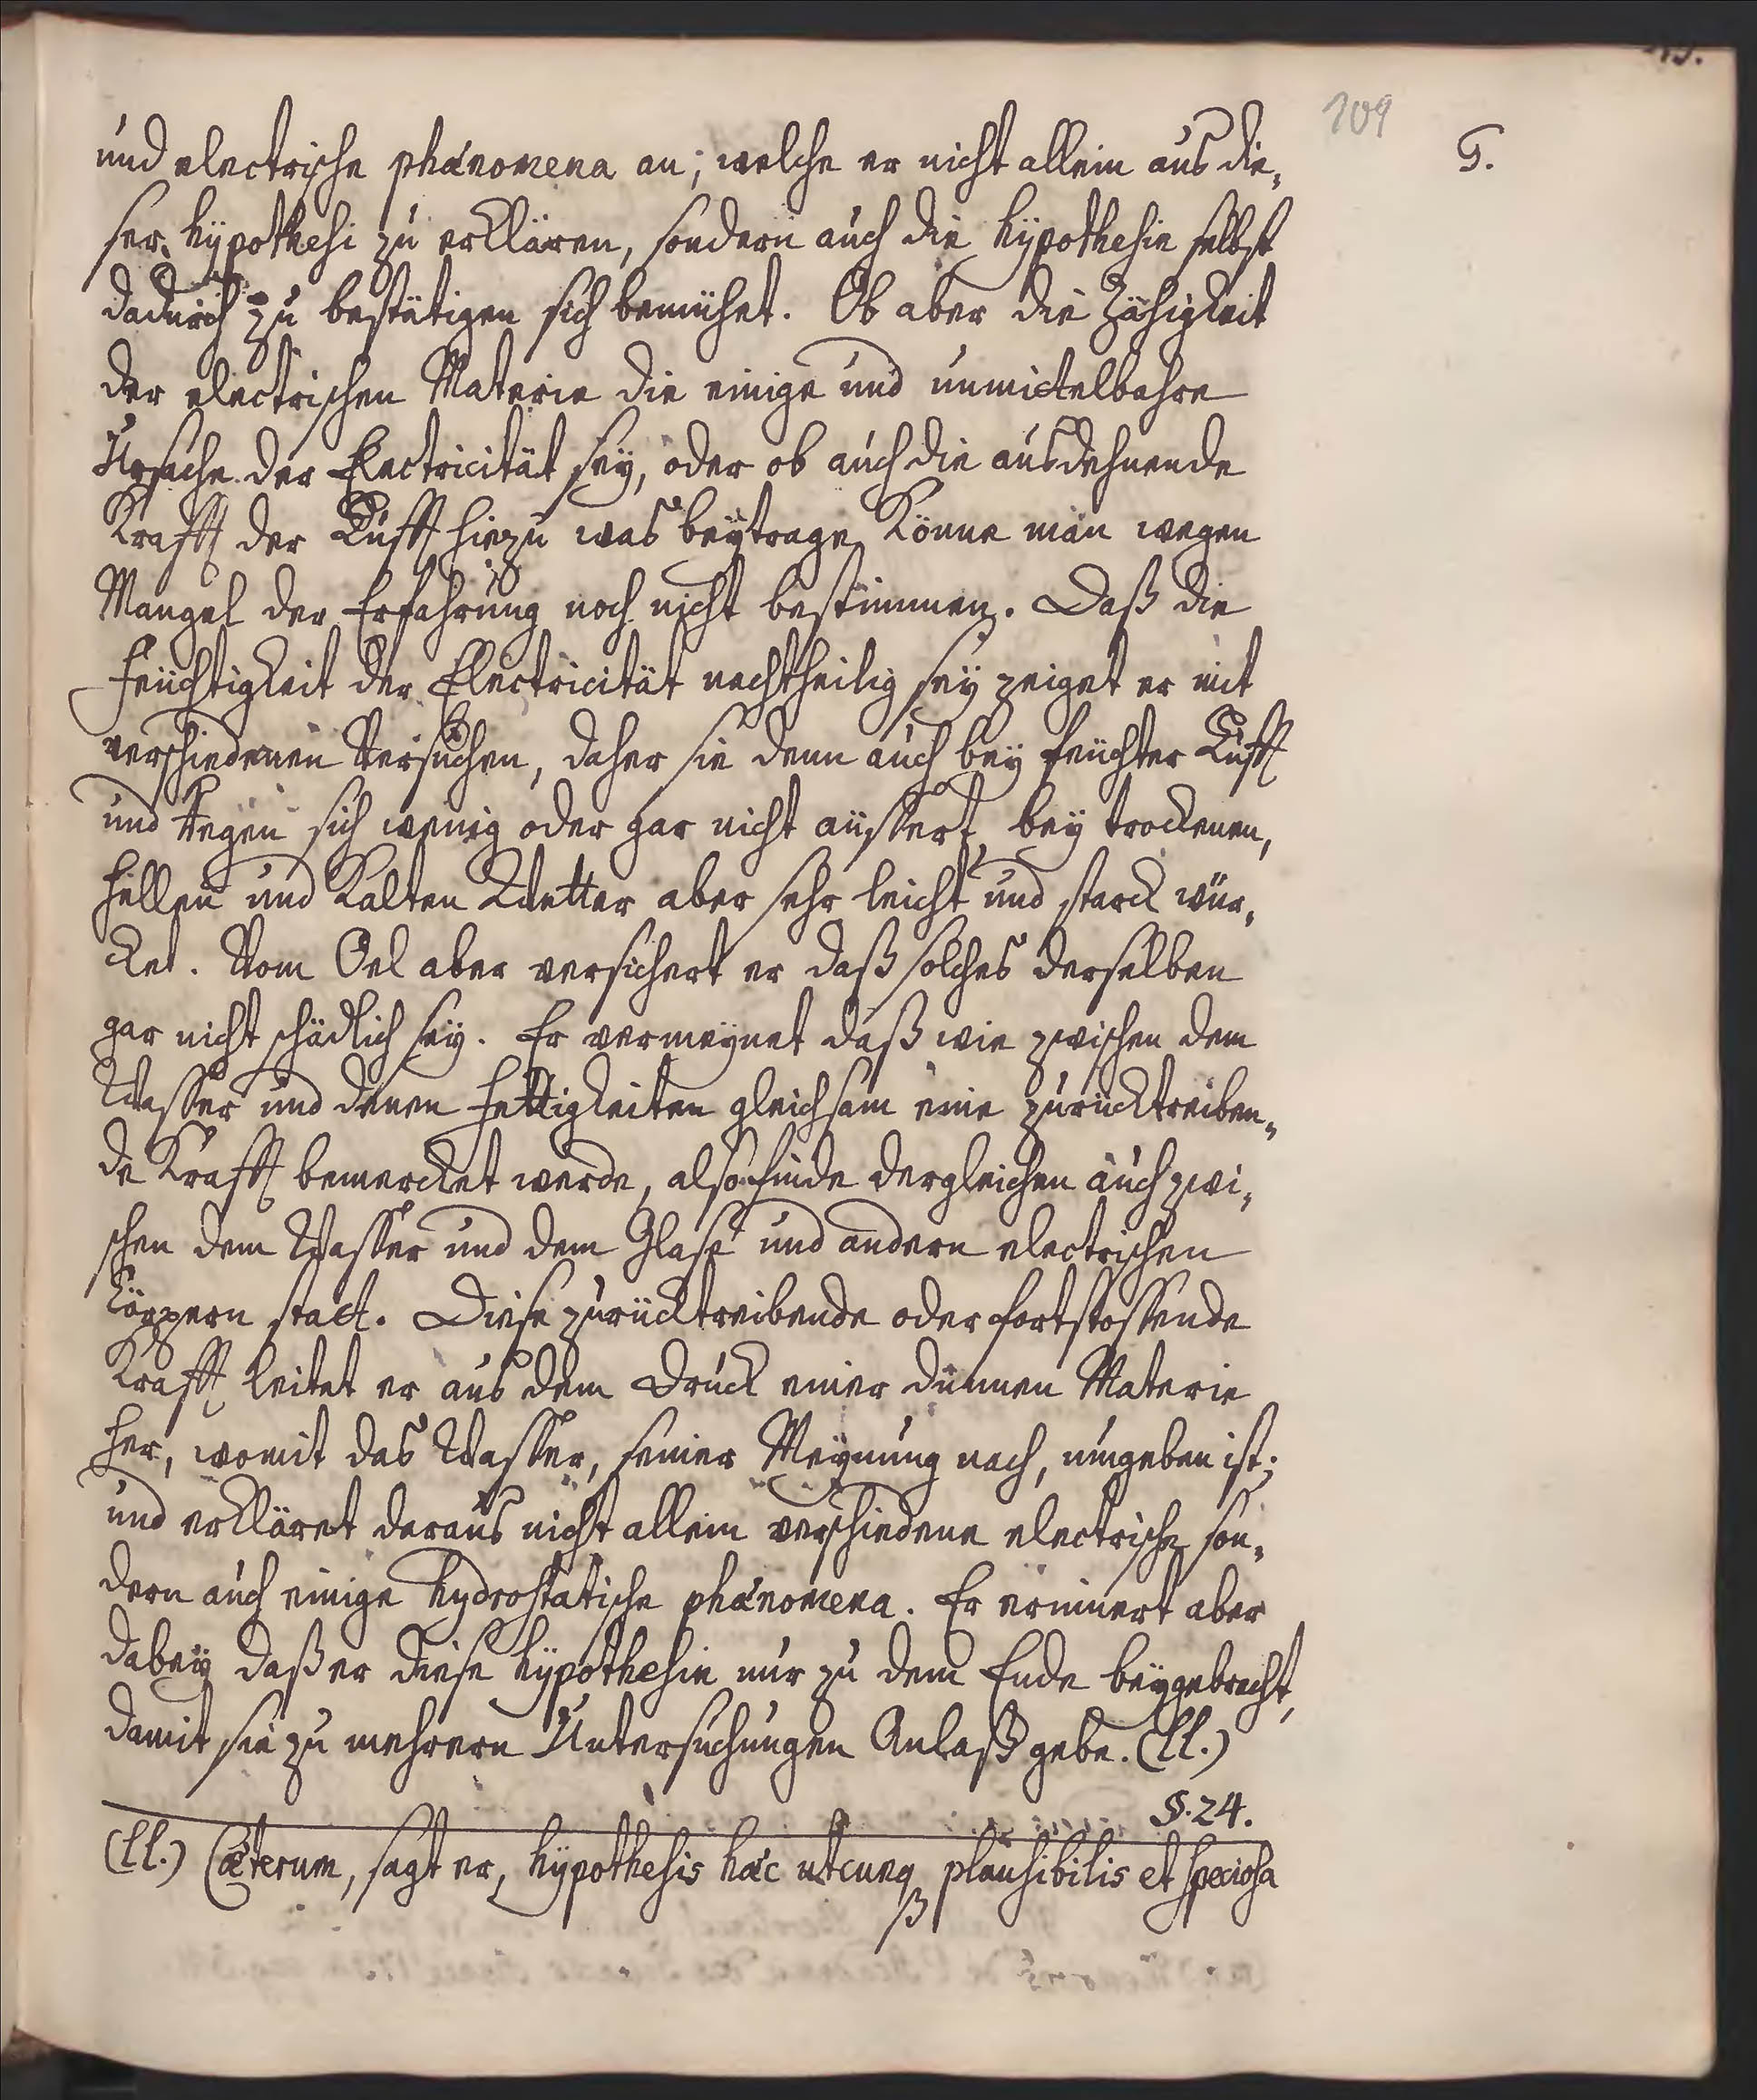 109
G.
und electrische phænomena an; welche er nicht allein aus die„
ser hÿpothesi zu erklären, sondern auch die hÿpothesin selbst
dadurch zu bestätigen sich bemühet. Ob aber die Zähigkeit
der electrischen Materie die einige und unmittelbahre
Ursache der Electricität seÿ, oder ob auch die ausdehnende
Krafft der Lufft hiezu was beÿtrage, könne man wegen
Mangel der Erfahrung noch nicht bestimmen. Daß die
Feuchtigkeit der Electricität nachtheilig seÿ zeiget er mit
verschiedenen Versuchen, daher sie denn auch beÿ feuchter Lufft
und Regen sich wenig oder gar nicht äussert, beÿ trockenen,
hellen und kalten Wetter aber sehr leicht und starck wür„
cket. Vom Oel aber versichert er daß solches derselben
gar nicht schädlich seÿ. Er vermeÿnet daß wie zwischen dem
Wasser und denen Fettigkeiten gleichsam eine zurücktreiben„
de Krafft bemercket werde, also finde dergleichen auch zwi„
schen dem Wasser und dem Glase und andern electrischen
Cörpern statt. Diese zurücktreibende oder fortstossende
Krafft leitet er aus dem Druck einer dünnen Materie
her, womit das Wasser, seiner Meÿnung nach, umgeben ist;
und erkläret daraus nicht allein verschiedene electrische son„
dern auch einige hydrostatische phænomena. Er erinnert aber
dabeÿ daß er diese hÿpothesin nur zu dem Ende beÿgebracht,
damit sie zu mehrern Untersuchungen Anlaß gebe. (ll.)
§. 24.
(ll.) Cæterum, sagt er, hÿpothesis hæc utcunq plausibilis et speciosa